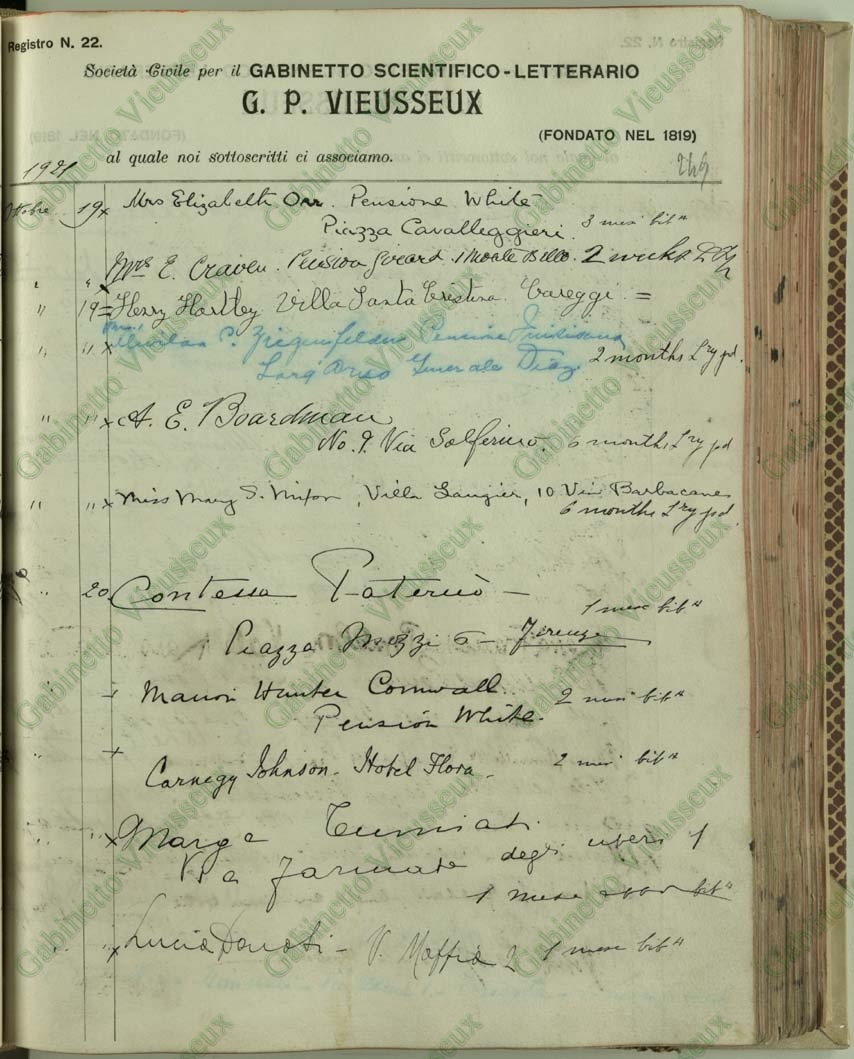 Registro N. 22.
Società Civile per il GABINETTO SCIENTIFICO-LETTERARIO
G. P. VIEUSSEUX
(FONDATO NEL 1819)
al quale noi sottoscritti ci associamo.
1921 249
Ottobre 19 x Mrs Elizabeth Orr. Pensione White
Piazza Cavalleggieri. 3 mesi bibª
" " x Mrs E. Craven. Pension Girard. 1 Monte Bello. 2 weeks
" 19 = Henry Hartley Villa Santa Cristina Careggi =
" " x Mrs. P. Pensione
Lung'Arno Generale Diaz 2 months Lry pd.
" " x A. E. Boardman
No. 9. Via Solferino. 6 months Lry pd
" " x Miss Mary S. Nixon, Villa Laugier, 10 Via Barbacane
6 months Lry pd.
" 20 Contessa Paternò —
1 mese bibª
Piazza Mozzi 6 — Firenze
Hunter Cornwall. 2 mesi bibª
Pension White.
Carnegy Johnson - Hotel Flora. 2 mesi bibª
" x Marga Tumiati
Via Farinata degli Uberti 1
1 mese bibª
" x Lucia Donati - V. Maffia 2 1 mese bibª
Gabinetto Vieusseux